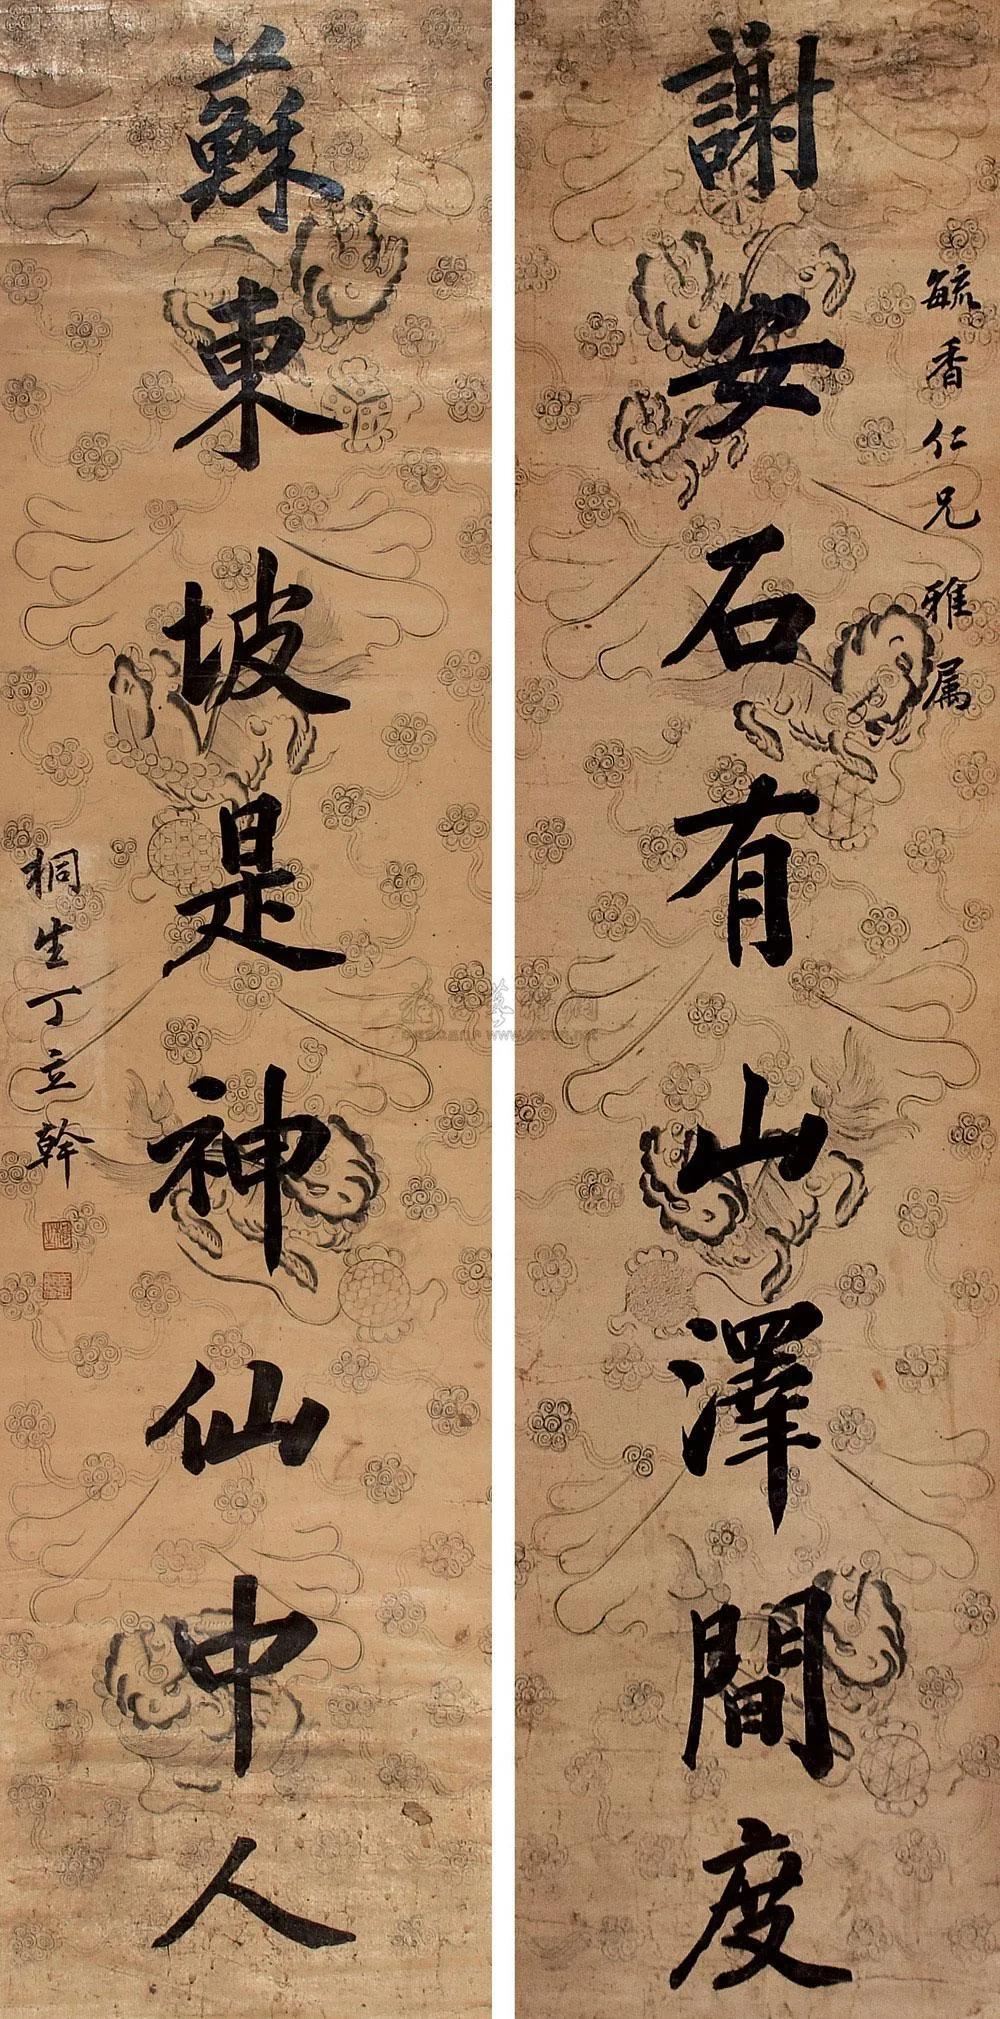 謝安石有山澤間度
毓香仁兄雅属
蘇東坡是神仙中人
桐生丁立幹